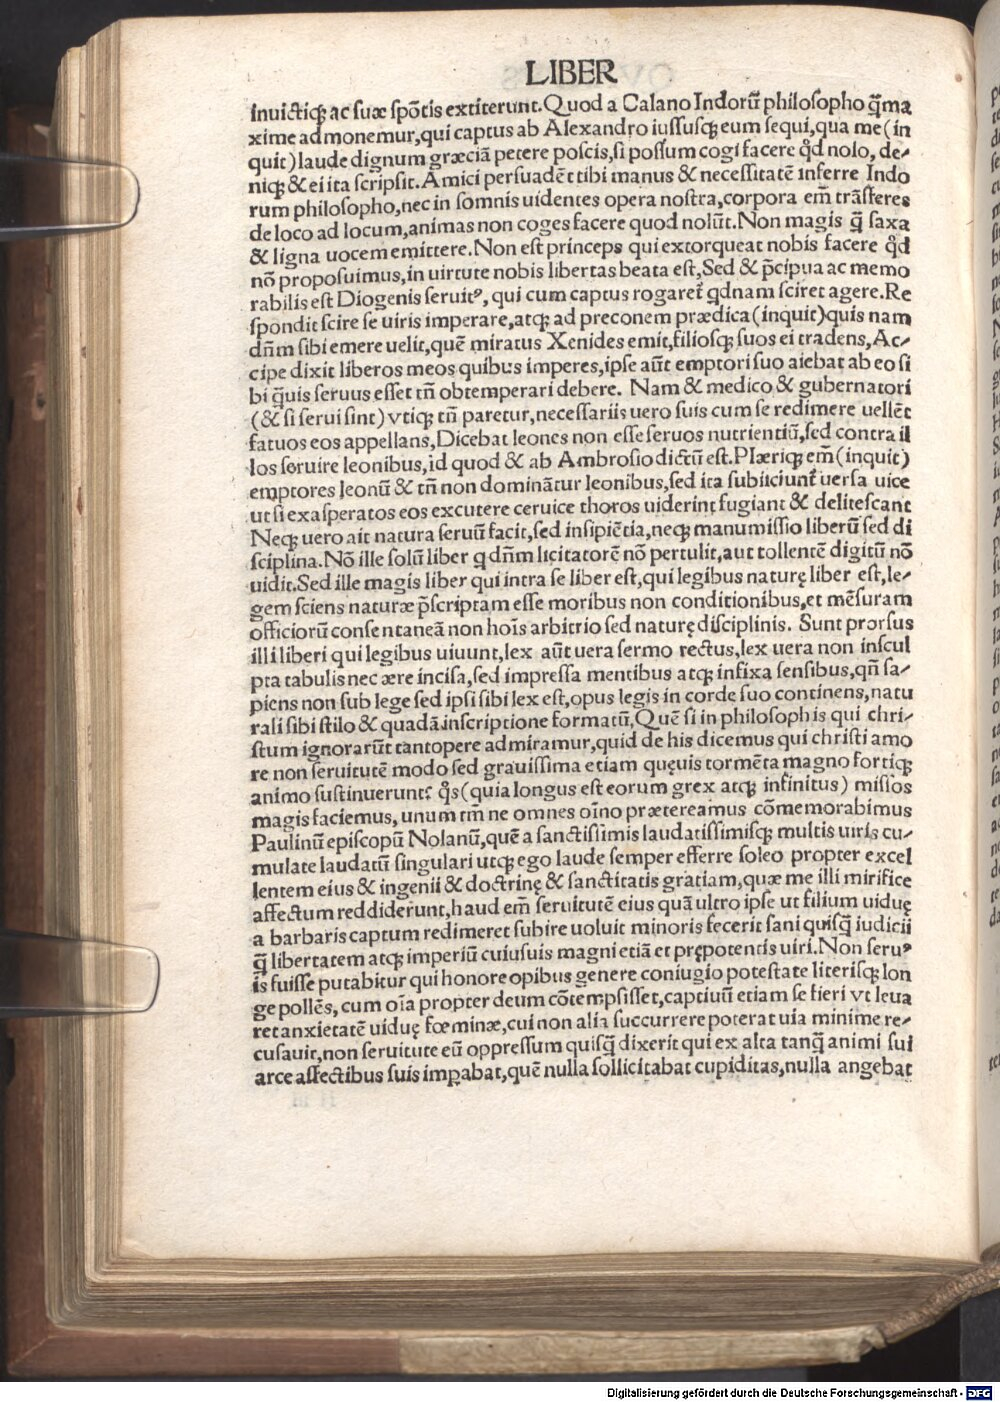 LIBER
inuictiqꝫ ac suæ spōtis extiterunt. Quod a Calano Indorū philosopho q̄ma
xime admonemur, qui captus ab Alexandro iussusqꝫ eum sequi, qua me (in
quit) laude dignum græciā petere poscis, si possum cogi facere qd̄ nolo, de-
niqꝫ & ei ita scripsit. Amici persuadēt tibi manus & necessitatē inferre Indo
rum philosopho, nec in somnis uidentes opera nostra, corpora em̄ trāsferes
de loco ad locum, animas non coges facere quod nolūt. Non magis q̄ saxa
& ligna uocem emittere. Non est princeps qui extorqueat nobis facere qd̄
nō proposuimus, in uirtute nobis libertas beata est, Sed & p̄cipua ac memo
rabilis est Diogenis seruitꝰ, qui cum captus rogaret̄ qdnam sciret agere. Re
spondit scire se uiris imperare, atqꝫ ad preconem prædica (inquit) quis nam
dn̄m sibi emere uelit, quē miratus Xenides emit, filiosqꝫ suos ei tradens, Ac-
cipe dixit liberos meos quibus imperes, ipse aūt emptori suo aiebat ab eo si
bi q̄uis seruus esset tn̄ obtemperari debere. Nam & medico & gubernatori
(& si serui sint) vtiqꝫ tn̄ paretur, necessariis uero suis cum se redimere uellēt
fatuos eos appellans, Dicebat leones non esse seruos nutrientiū, sed contra il
los seruire leonibus, id quod & ab Ambrosio dictū est. Plæriqꝫ em̄ (inquit)
emptores leonū & tn̄ non dominātur leonibus, sed ita subiiciunt̄ uersa uice
ut si exasperatos eos excutere ceruice thoros uiderint fugiant & delitescant
Neqꝫ uero ait natura seruū facit, sed insipiētia, neqꝫ manumissio liberū sed di
sciplina. Nō ille solū liber q dn̄m licitatorē nō pertulit, aut tollentē digitū nō
uidit. Sed ille magis liber qui intra se liber est, qui legibus naturę liber est, le-
gem sciens naturæ p̄scriptam esse moribus non conditionibus, et mēsuram
officiorū consentaneā non hoīs arbitrio sed naturę disciplinis. Sunt prorsus
illi liberi qui legibus uiuunt, lex aūt uera sermo rectus, lex uera non inscul
pta tabulis nec ære incisa, sed impressa mentibus atqꝫ infixa sensibus, qn̄ sa-
piens non sub lege sed ipsi sibi lex est, opus legis in corde suo continens, natu
rali sibi stilo & quadā inscriptione formatū, Quē si in philosophis qui chri-
stum ignorarūt tantopere admiramur, quid de his dicemus qui christi amo
re non seruitutē modo sed grauissima etiam quęuis tormēta magno fortiqꝫ
animo sustinuerunt? q̊s (quia longus est eorum grex atqꝫ infinitus) missos
magis faciemus, unum tm̄ ne omnes oīno prætereamus cōmemorabimus
Paulinū episcopū Nolanū, quē a sanctissimis laudatissimisqꝫ multis uiris cu-
mulate laudatū singulari utqꝫ ego laude semper efferre soleo propter excel
lentem eius & ingenii & doctrinę & sanctitatis gratiam, quæ me illi mirifice
affectum reddiderunt, haud em̄ seruitutē eius quā ultro ipse ut filium uiduę
a barbaris captum redimeret subire uoluit minoris fecerit sani quisq̄ iudicii
q̄ libertatem atqꝫ imperiū cuiusuis magni etiā et prępotentis uiri. Non seruꝰ
is fuisse putabitur qui honore opibus genere coniugio potestate literisqꝫ lon
ge pollēs, cum oīa propter deum cōtempsisset, captiuū etiam se fieri vt leua
ret anxietatē uiduę fœminæ, cui non alia succurrere poterat uia minime re-
cusauit, non seruitute eū oppressum quisq̄ dixerit qui ex alta tanq̄ animi sui
arce affectibus suis imꝑabat, quē nulla sollicitabat cupiditas, nulla angebat
Digitalisierung gefördert durch die Deutsche Forschungsgemeinschaft - DFG